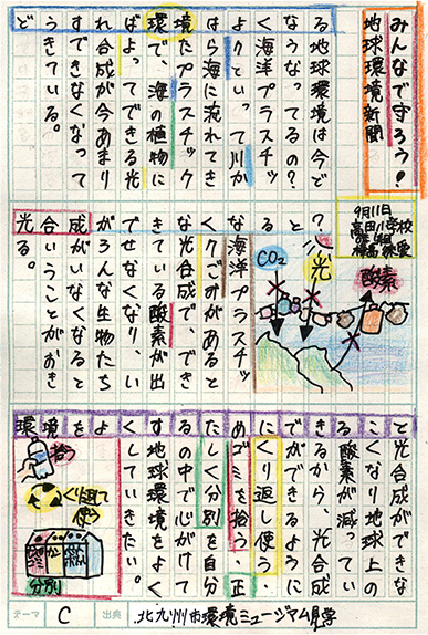 みんなで守ろう!
地球環境新聞
どうすれば環境はよくなる
地球環境は今ど
うなってるの?
海洋プラスチッ
クといって川か
ら海に流れてき
たプラスチック
で、海の植物に
よってできる光
合成が今あまり
できなくなって
きている。
9月11日
光合成ができなくなると?
海洋プラスチッ
クごみがあると
光合成で、でき
ている酸素が出
せなくなり、い
ろんな生物たち
がいなくなると
いうことがおき
る。
CO₂
光
酸素
環境をよくするためにできること
光合成ができな
くなり地球上の
酸素が減ってい
るから、光合成
ができるように
くり返し使う、
ゴミを拾う、正
しく分別を自分
の中で心がけて
地球環境をよく
していきたい。
拾う
くり返して
使う
分別
テーマ C 出典 北九州市環境ミュージアム見学